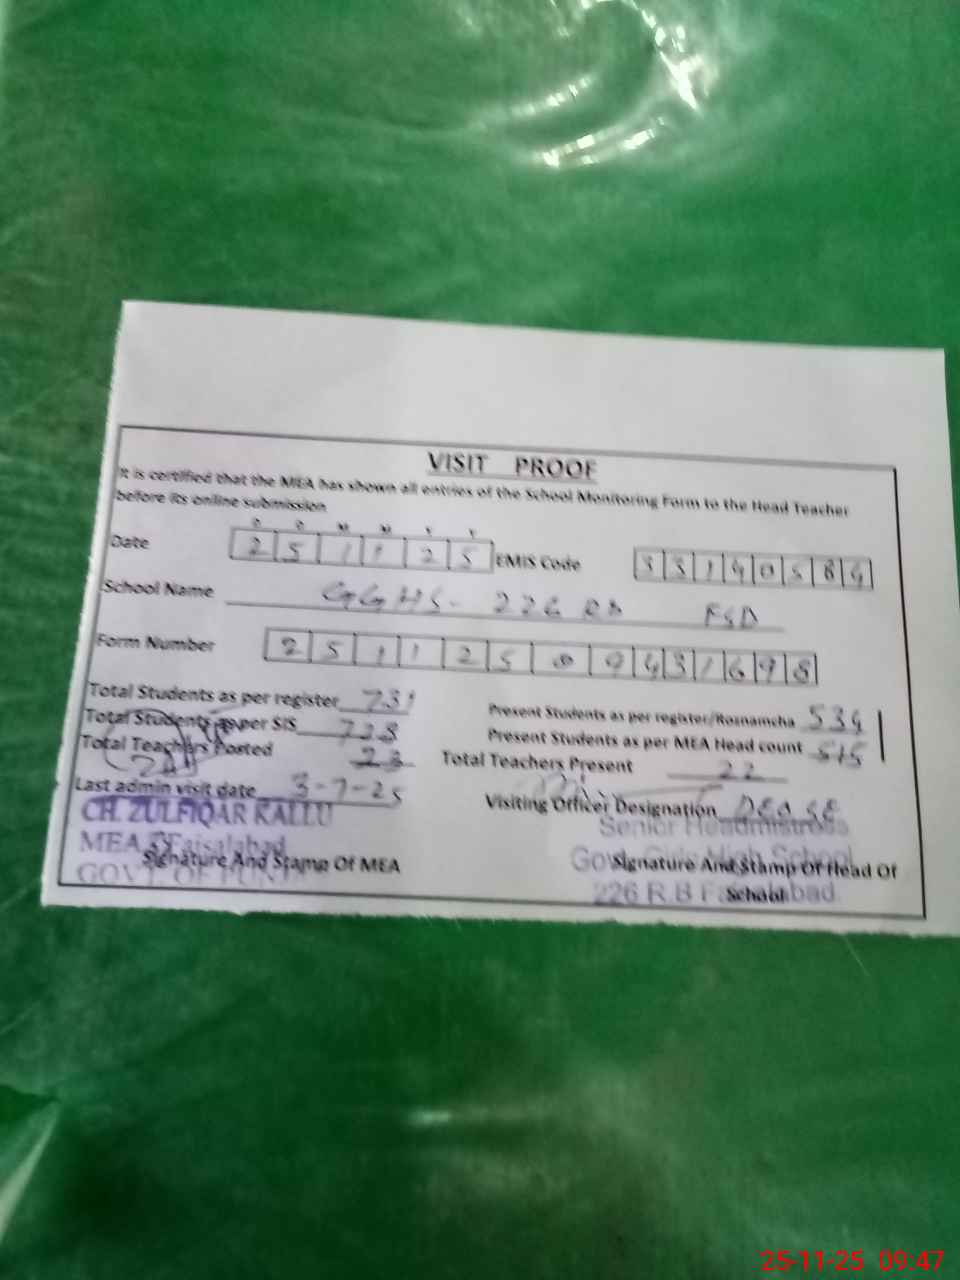 VISIT PROOF
It is certified that the MEA has shown all entries of the School Monitoring Form to the Head Teacher
before its online submission
D D M M Y Y
Date 2 5 1 1 2 5 EMIS Code 3 3 1 4 0 5 8 4
School Name GGHS- 226 RB FSD
Form Number 2 5 1 1 2 5 0 9 4 3 1 6 9 8
Total Students as per register 731 Present Students as per register/Rosnamcha 534
Total Students as per SIS 728 Present Students as per MEA Head count 515
Total Teachers Posted 23 Total Teachers Present 22
Last admin visit date 3-7-25 Visiting Officer Designation DEO SE
CH. ZULFIQAR KALLU Senior Headmistress
MEA Faisalabad Govt. Girls High School
Signature And Stamp Of MEA Signature And Stamp Of Head Of
GOVT. OF 226 R.B School
25-11-25 09:47